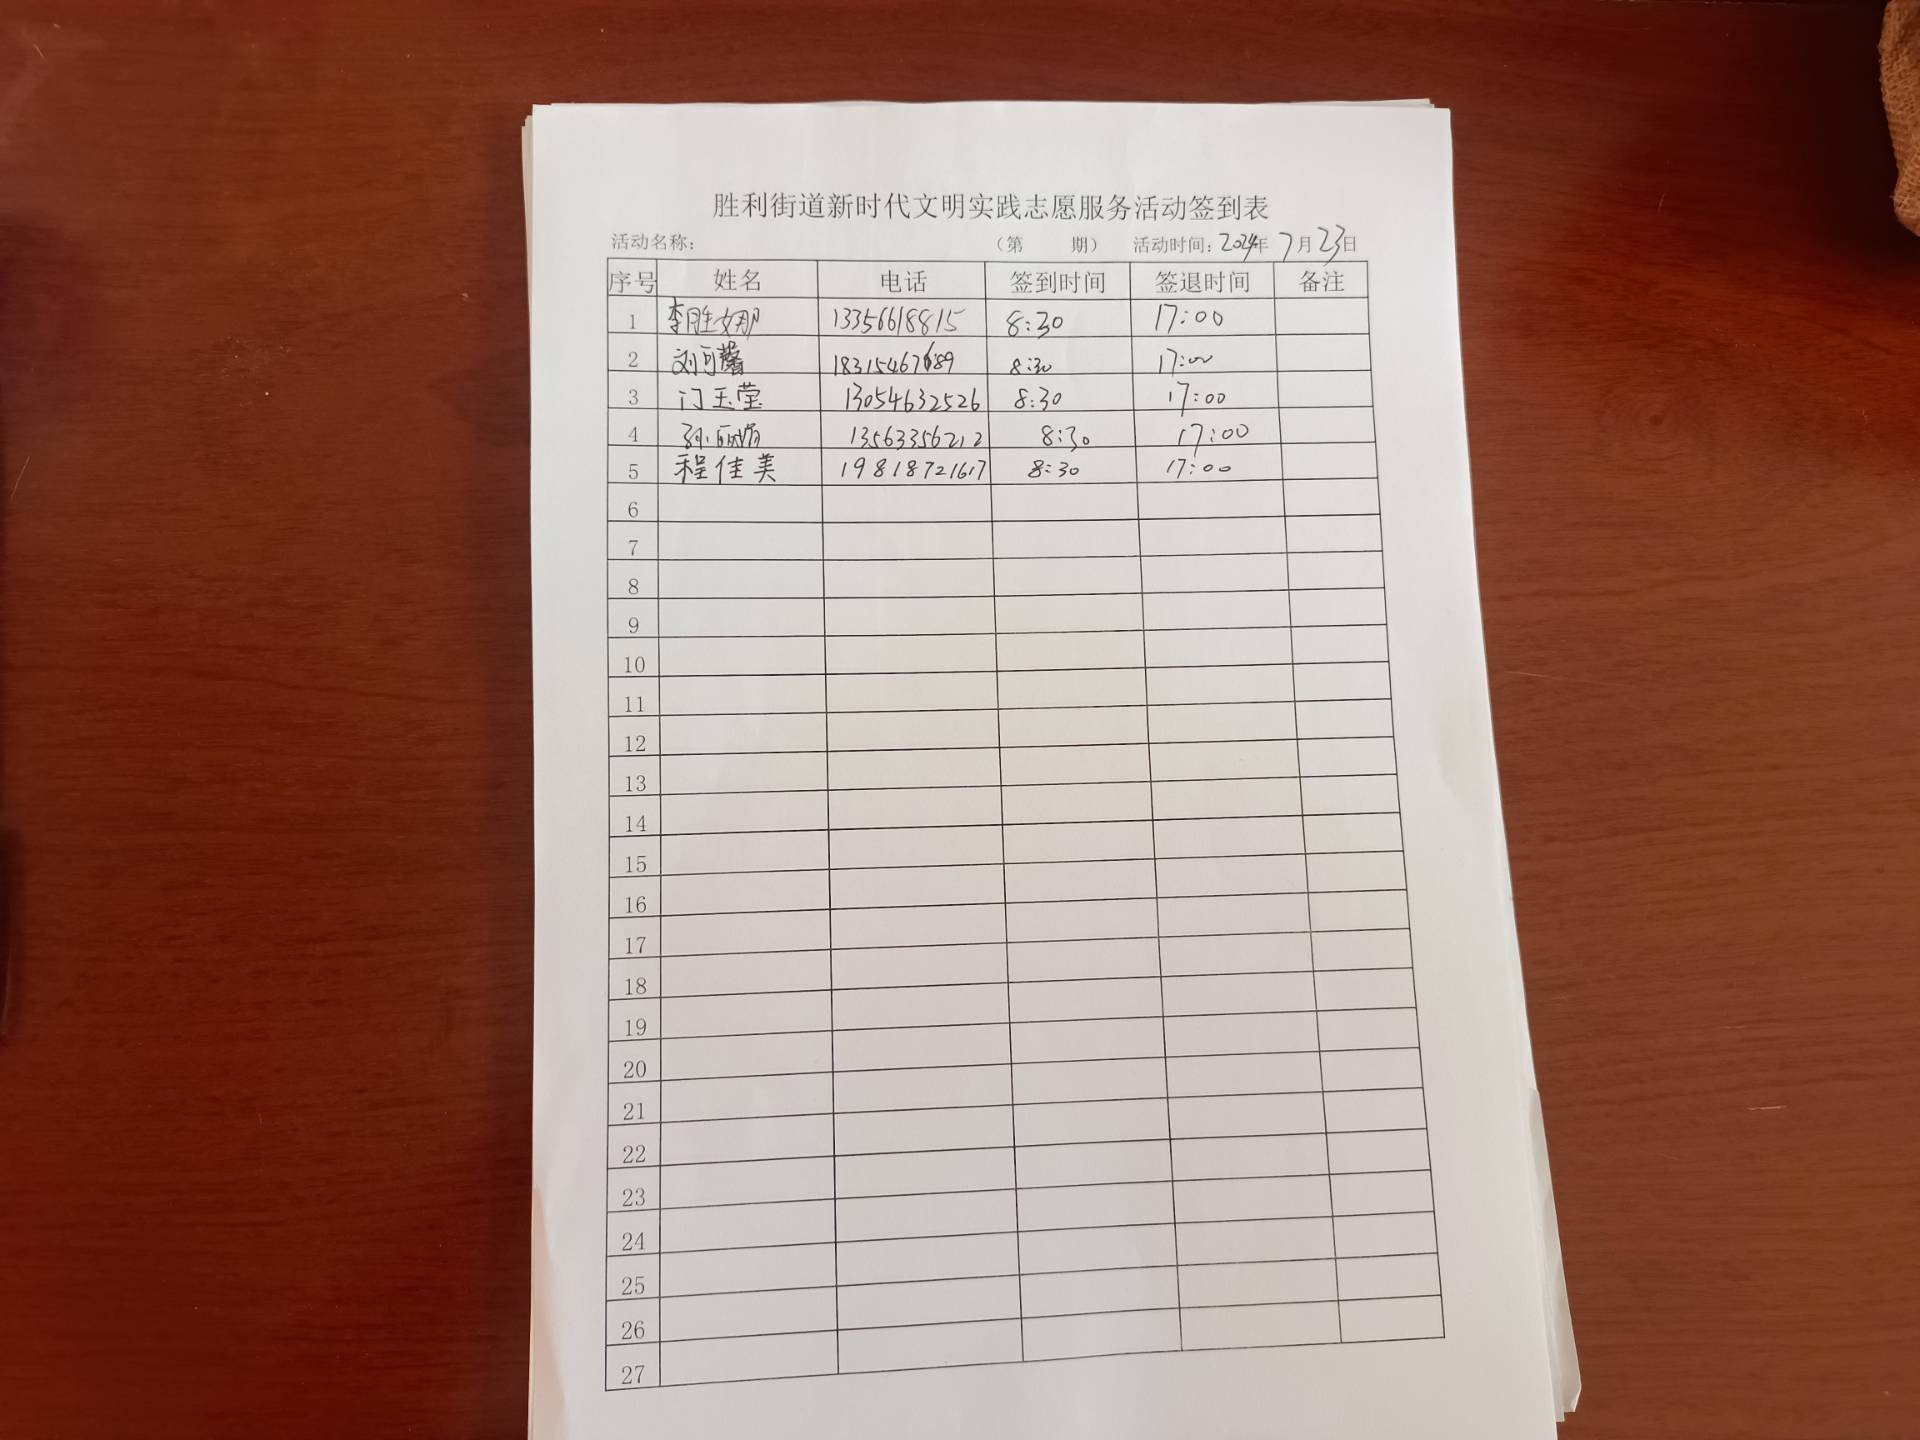 胜利街道新时代文明实践志愿服务活动签到表
活动名称： （第 期） 活动时间：2024年 7月23日
序号 姓名 电话 签到时间 签退时间 备注
1 李胜娜 13356618815 8:30 17:00
2 刘可馨 18315467689 8:30 17:00
3 门玉莹 13054632526 8:30 17:00
4 孙丽娟 13563356212 8:30 17:00
5 程佳美 19818721617 8:30 17:00
6
7
8
9
10
11
12
13
14
15
16
17
18
19
20
21
22
23
24
25
26
27